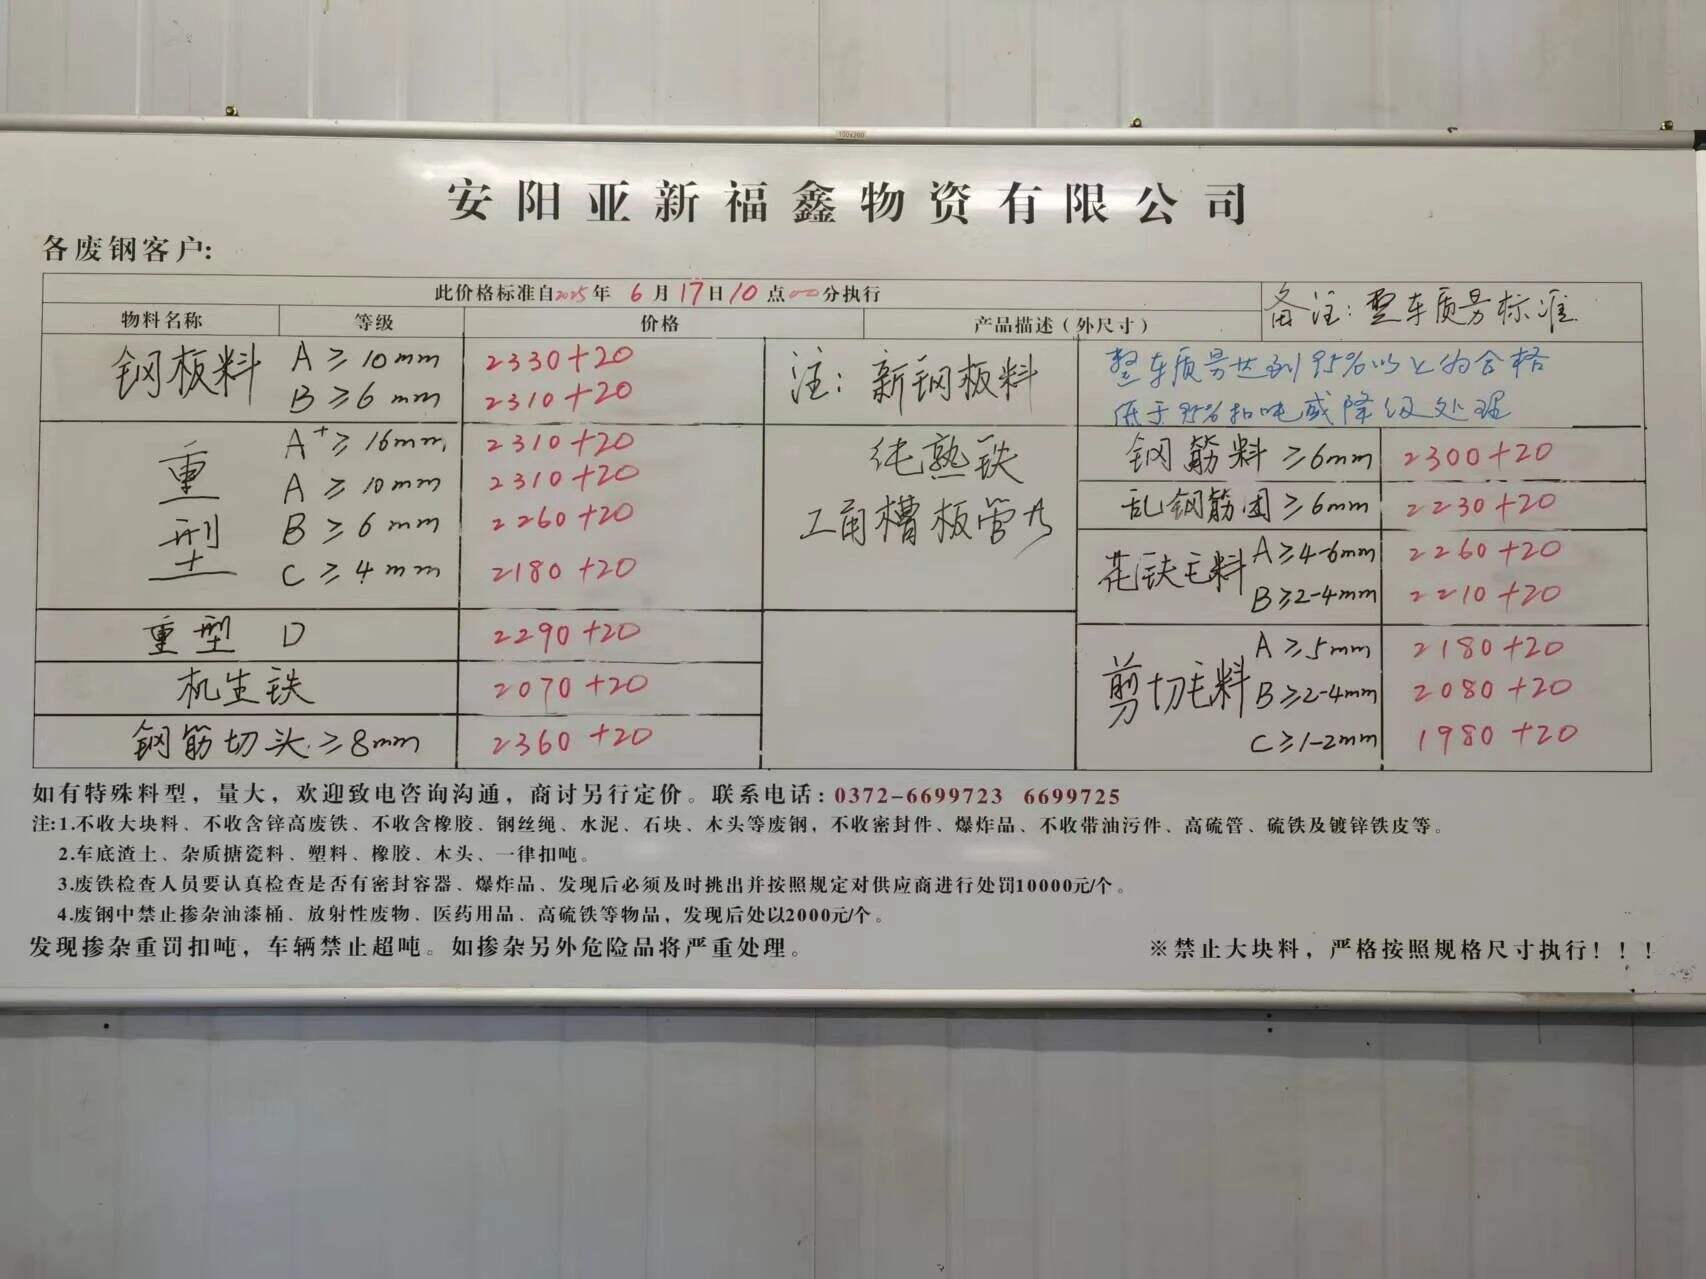 100x360
安阳亚新福鑫物资有限公司
各废钢客户:
此价格标准自2025年 6月17日10点00分执行
备注:整车质量标准
物料名称 等级 价格 产品描述(外尺寸)
钢板料 A≥10mm 2330+20
B≥6mm 2310+20
注:新钢板料
整车质量达到95%以上为合格
低于95%扣吨或降级处理
重型 A+≥16mm 2310+20
A≥10mm 2310+20
B≥6mm 2260+20
C≥4mm 2180+20
纯熟铁
工角槽板管
钢筋料≥6mm 2300+20
乱钢筋团≥6mm 2230+20
花铁毛料 A≥4-6mm 2260+20
B≥2-4mm 2210+20
重型 D 2290+20
机生铁 2070+20
钢筋切头≥8mm 2360+20
剪切毛料 A≥5mm 2180+20
B≥2-4mm 2080+20
C≥1-2mm 1980+20
如有特殊料型，量大，欢迎致电咨询沟通，商讨另行定价。联系电话:0372-6699723 6699725
注:1.不收大块料、不收含锌高废铁、不收含橡胶、钢丝绳、水泥、石块、木头等废钢，不收密封件、爆炸品、不收带油污件、高硫管、硫铁及镀锌铁皮等。
2.车底渣土、杂质搪瓷料、塑料、橡胶、木头、一律扣吨。
3.废铁检查人员要认真检查是否有密封容器、爆炸品、发现后必须及时挑出并按照规定对供应商进行处罚10000元/个。
4.废钢中禁止掺杂油漆桶、放射性废物、医药用品、高硫铁等物品，发现后处以2000元/个。
发现掺杂重罚扣吨，车辆禁止超吨。如掺杂另外危险品将严重处理。
※禁止大块料，严格按照规格尺寸执行！！！